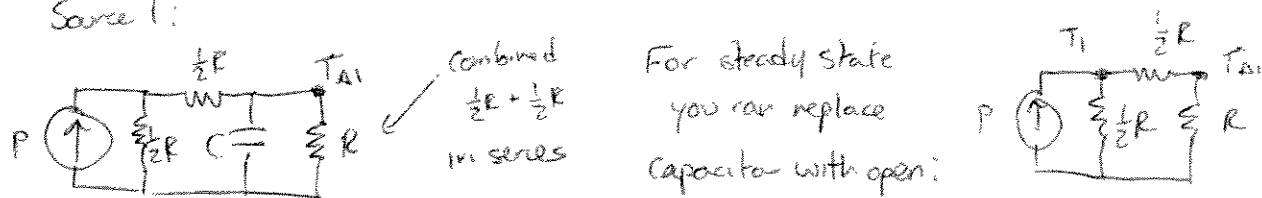 Source 1:
P
½R
½R
C
T_A1
R
Combined
½R + ½R
in series
For steady state
you can replace
capacitor with open:
P
T_1
½R
½R
T_A1
R